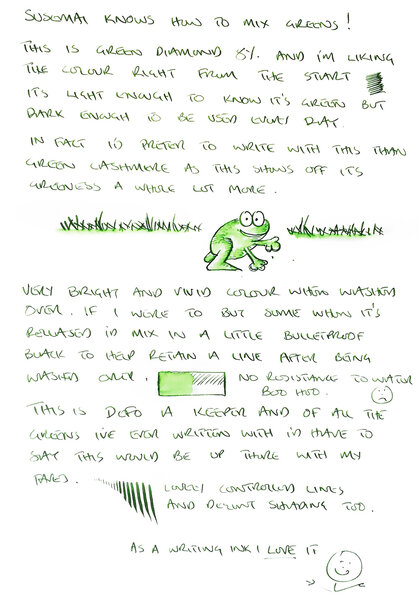 SUSEMAI KNOWS HOW TO MIX GREENS!
THIS IS GREEN DIAMOND 8%. AND I'M LIKING
THE COLOUR RIGHT FROM THE START
IT'S LIGHT ENOUGH TO KNOW IT'S GREEN BUT
DARK ENOUGH TO BE USED EVERY DAY.
IN FACT I'D PREFER TO WRITE WITH THIS THAN
GREEN CASHMERE AS THIS SHOWS OFF IT'S
GREENESS A WHOLE LOT MORE.
VERY BRIGHT AND VIVID COLOUR WHEN WASHED
OVER. IF I WERE TO BUY SOME WHEN IT'S
RELEASED I'D MIX IN A LITTLE BULLETPROOF
BLACK TO HELP RETAIN A LINE AFTER BEING
WASHED OVER.
NO RESISTANCE TO WATER
BOO HOO.
THIS IS DEFO A KEEPER AND OF ALL THE
GREENS I'VE EVER WRITTEN WITH I'D HAVE TO
SAY THIS WOULD BE UP THERE WITH MY
FAVES.
LOVELY CONTROLLED LINES
AND DECENT SHADING TOO.
AS A WRITING INK I LOVE IT